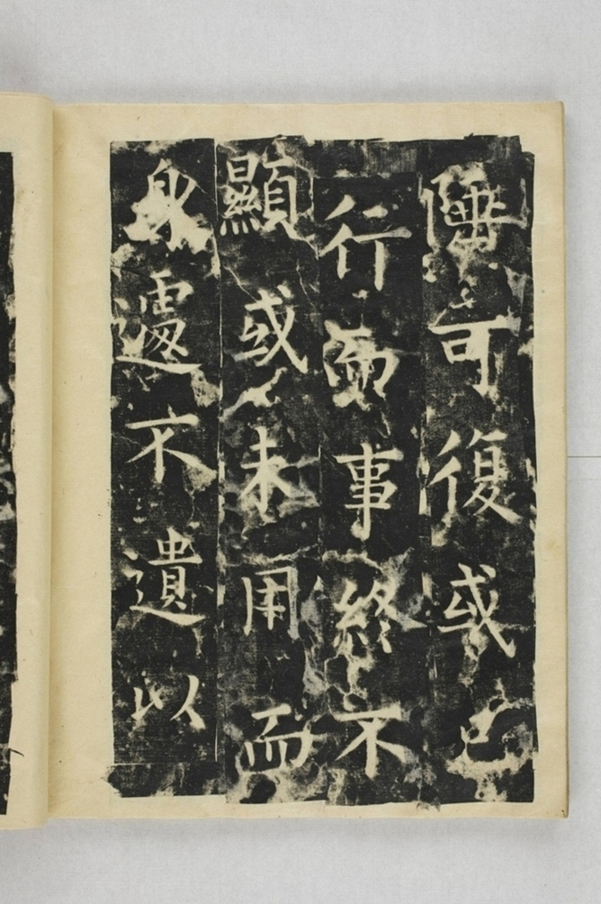 陲可復或已
行而事終不
顯或未用而
身遽不遺以